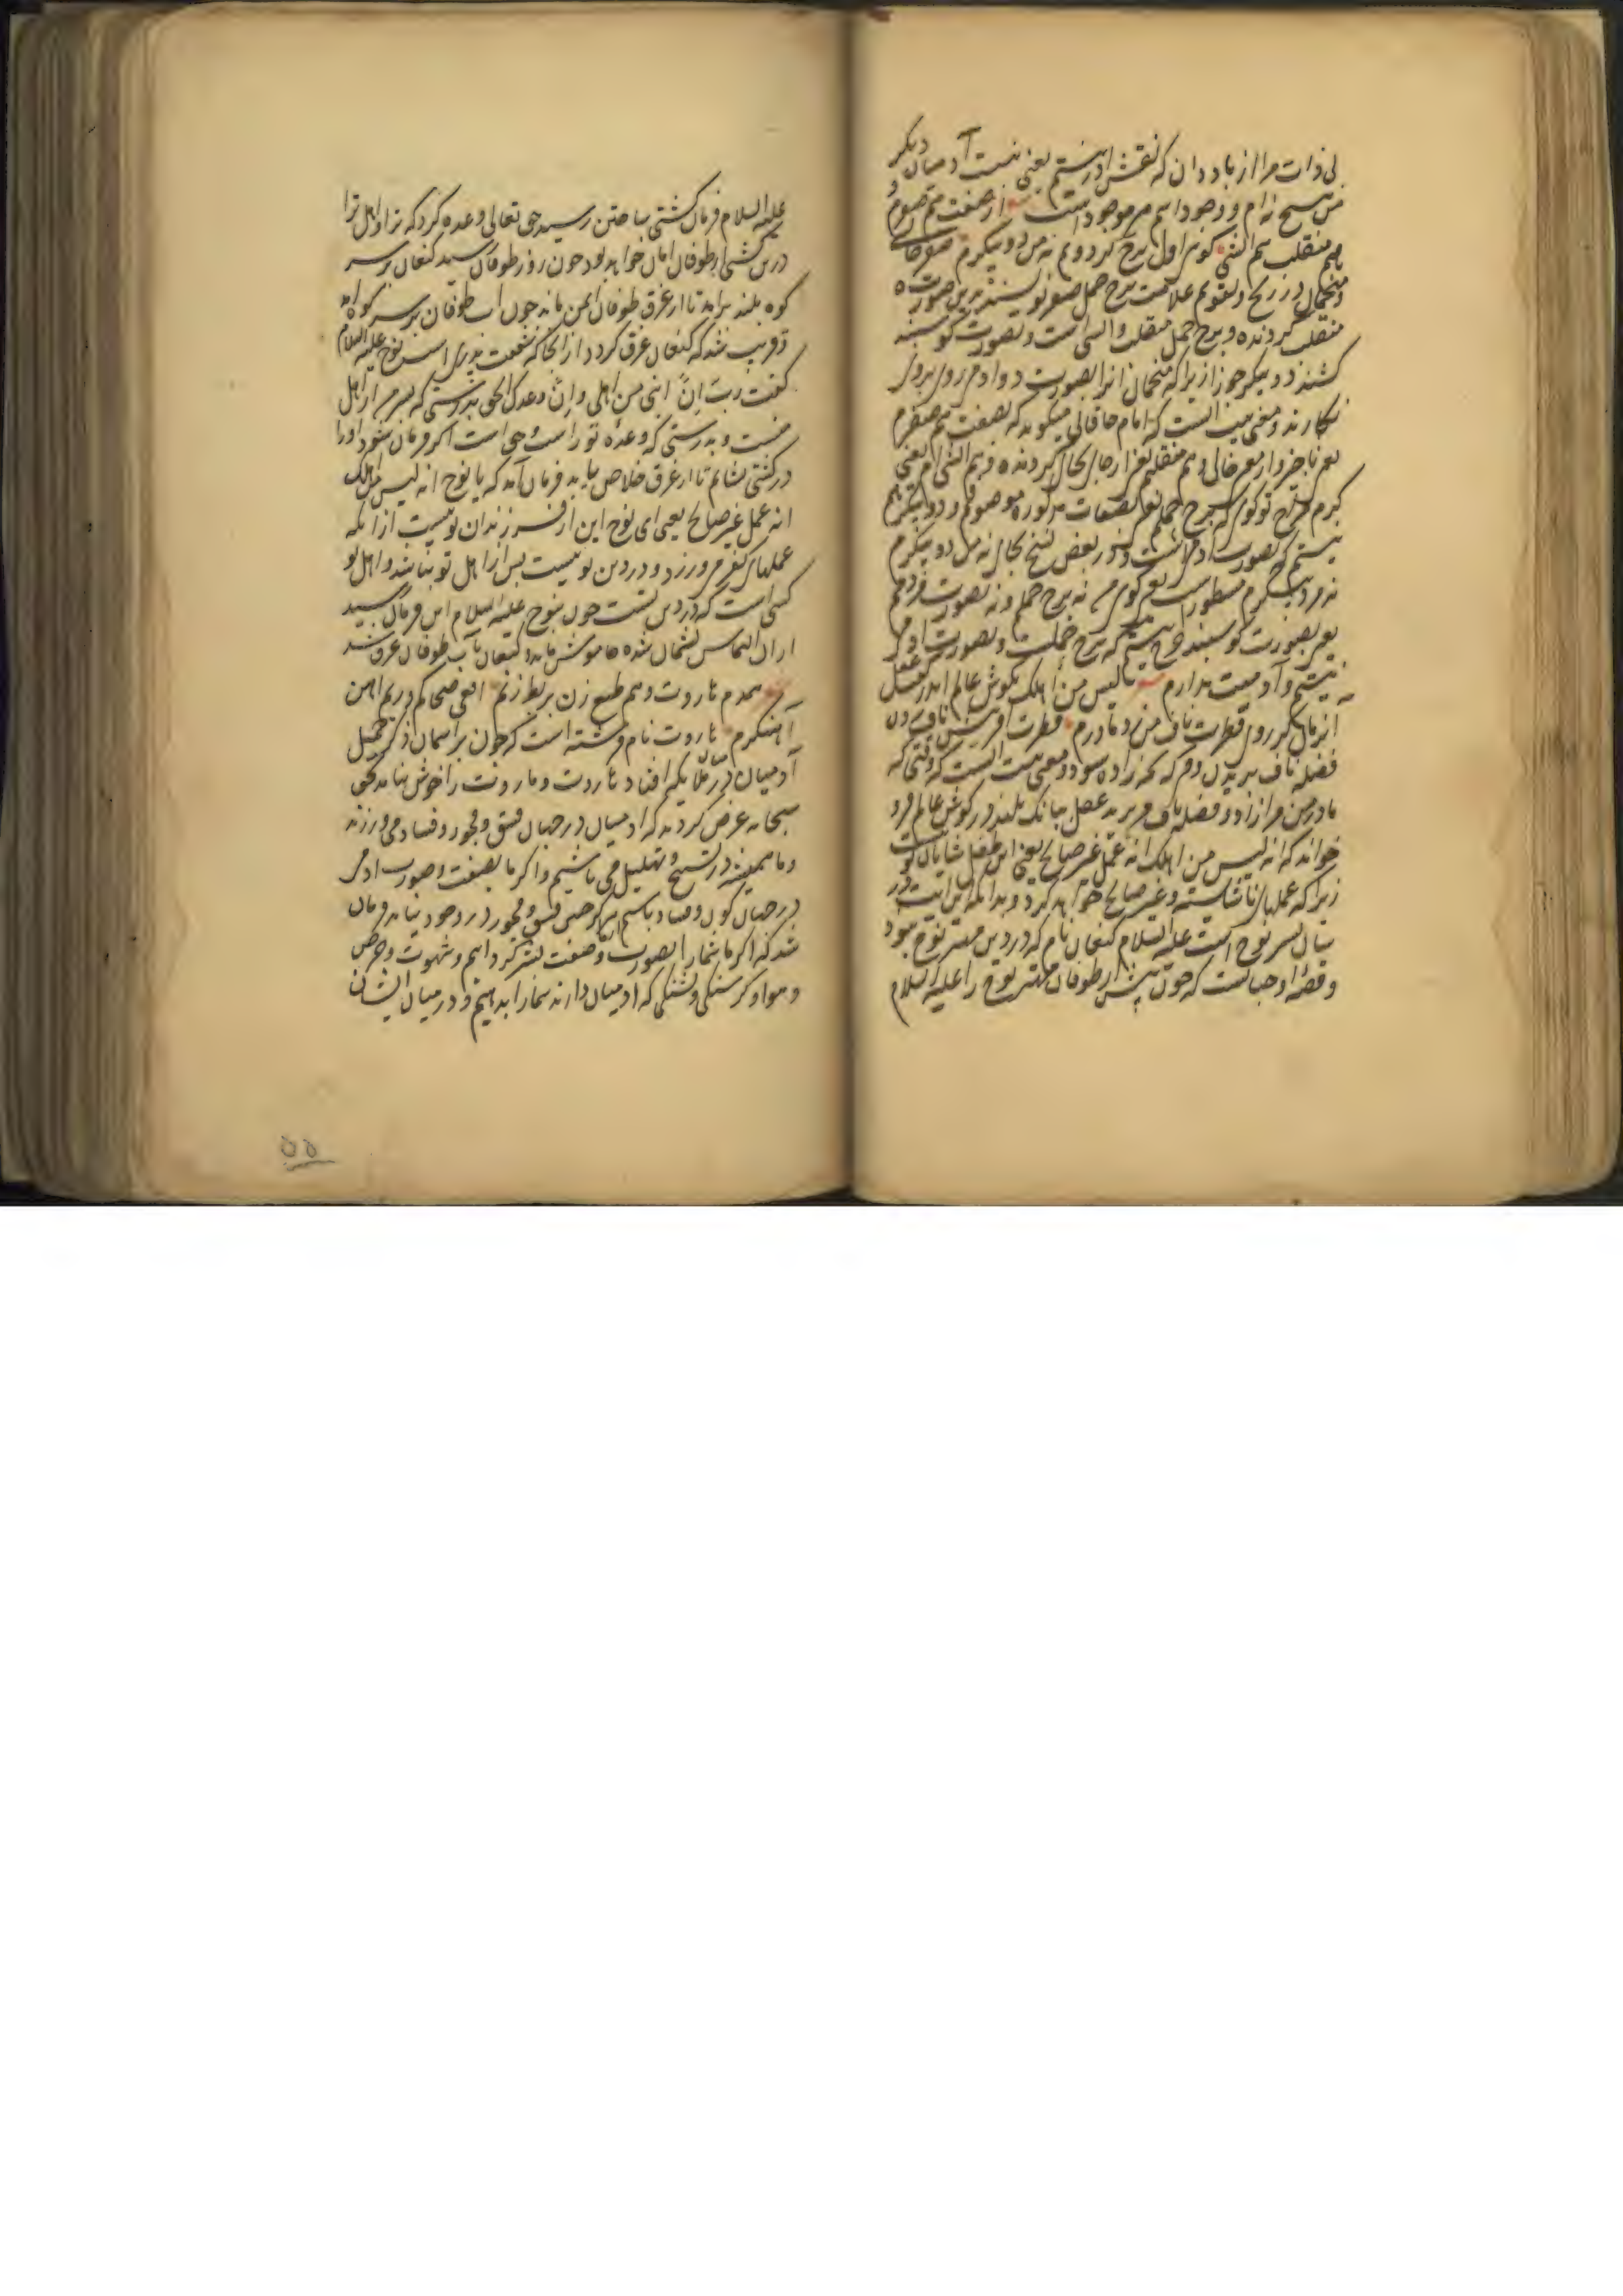 بی ذات مرا از باد دان که نقش اورستم یعنی نیست آدمیان دیگر
من هیچ نه ام و وجود اسم من موجود است از صفت هم صفرم و
هم منقلب هم آتشی کوی اول برج گردونم نه من دو پیکرم صفر خالی
و منجمان در زیج و تقویم علامت برج حمل صفر نویسند برین صورت ه
منقلب گردنده و برج حمل منقلب و آتشی است و بصورت گوسپند
کشند دو پیکر جوزا زیرا که منجمان آنرا بصورت دو آدم روی بروی
نگارند و معنی بیت آنست که امام خاقانی میگوید که بصفت هم صفرم
یعنی ناچیز و از معنی خالی و هم منقلبم یعنی از حال بحال گردنده و هم آتشی ام یعنی
گرم مزاج تو گویی که برج حملم یعنی بصفات مذکوره موصوفم و دو پیکر هم
نیستم که بصورت آدمی است و در بعض نسخ بجای نه من دو پیکرم
نه در پیکرم مسطور است یعنی گویی من نه برج حملم و نه بصورت
یعنی بصورت گوسپند چرخ نیستم که برج حمل است و بصورت آدمی
نیستم و آدمیت ندارم لیس من اهلک بگوش عالم اندر گفت عقل
آن زمان کز روی فطرت ناف من زد مادرم فطرت آفرینش ناف زدن
فضله ناف بریدن دوم که بچه زاده شود و معنی بیت آنست که وقتی که
مادر من مرا زاد و فضله ناف من برید عقل ببانگ بلند در گوش عالم فرو
خواند که انه لیس من اهلک انه عمل غیر صالح یعنی این طفل شایان تو نیست
زیرا که عملهای ناشایسته و غیر صالح خواهد کرد و بدانکه این آیت در
بیان پسر نوح است علیه السلام کنعان نام که در دین مهتر نوح نبود
و قصه او چنانست که چون پیش از طوفان مهتر نوح را علیه السلام
علیه السلام فرمان کشتی ساختن رسید حق تعالی وعده کرد که ترا و اهل ترا
درین کشتی از طوفان امان خواهد بود چون روز طوفان رسید کنعان بر سر
کوه بلند برآمد تا از غرق طوفان ایمن ماند چون آب طوفان بر سر کوه آمد
قریب شد که کنعان غرق گردد از آنجا که شفقت پدری است نوح علیه السلام
گفت رب ان ابنی من اهلی وان وعدک الحق بدرستی که پسر من از اهل
منست و بدرستی که وعده تو راست و حق است اگر فرمان شود او را
در کشتی نشانم تا از غرق خلاص یابد فرمان آمد که یا نوح انه لیس من اهلک
انه عمل غیر صالح یعنی ای نوح این از فرزندان تو نیست از آنکه
عملهای کفر می ورزد و در دین تو نیست پس از اهل تو نباشد و اهل تو
کسی است که در دین تست چون بنوح علیه السلام این فرمان رسید
از آن التماس پشیمان شده خاموش ماند و کنعان بآب طوفان غرق شد
همدم هاروت و هم طبع زن بربط زنم افعی ضحاکم و ریم آهن
آهنگرم هاروت نام فرشته است که چون بر آسمان ذکر جمیل
آدمیان در ملایکه افتاد هاروت و ماروت را خوش نیامد بحق
سبحانه عرض کردند که آدمیان در جهان فسق و فجور و فساد می ورزند
و ما همیشه در تسبیح و تهلیل می باشیم و اگر ما بصفت و صورت آدمی
در جهان کون و فساد باشیم هرگز چنین فسق و فجور در وجود نیاید فرمان
شد که اگر ما شما را بصورت و صفت بشر گردانیم و شهوت و حرص
و هوا و گرسنگی و تشنگی که آدمیان دارند شما را بدهیم و در میان ایشان
۵۵